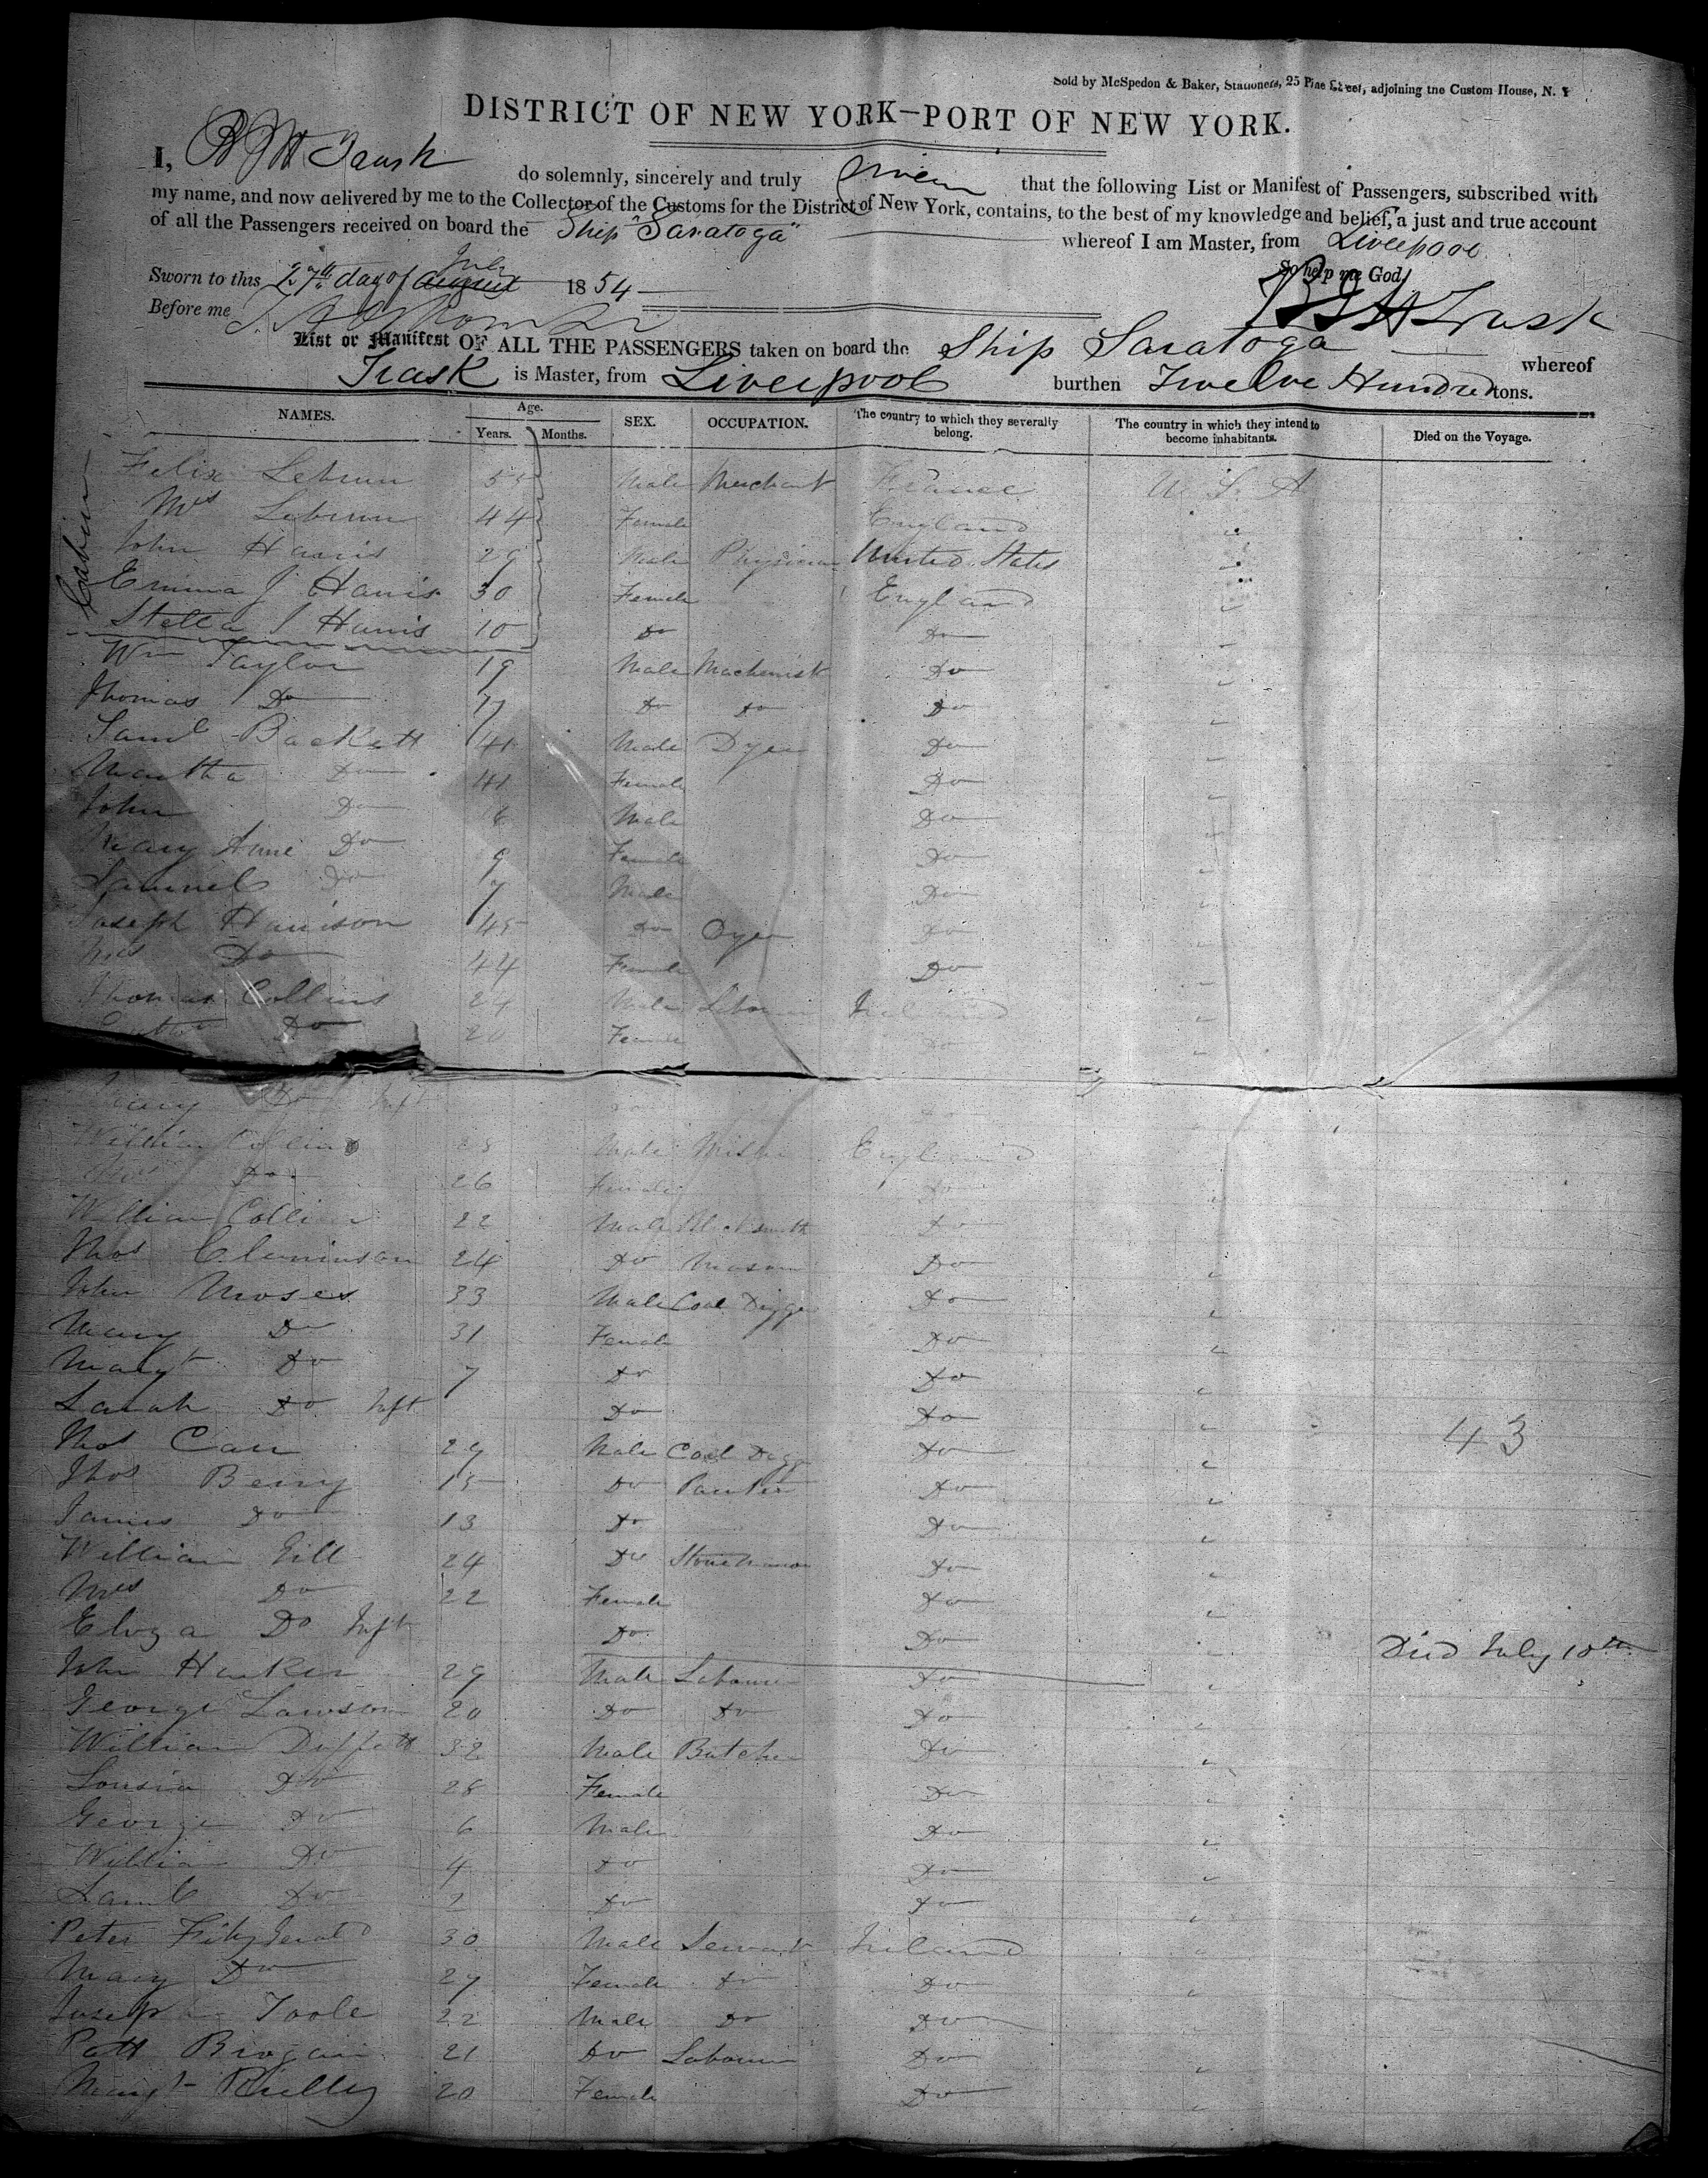 Sold by McSpedon & Baker, Stationers, 25 Pine Street, adjoining the Custom House, N. Y
DISTRICT OF NEW YORK—PORT OF NEW YORK.
I, Trask do solemnly, sincerely and truly swear that the following List or Manifest of Passengers, subscribed with
my name, and now delivered by me to the Collector of the Customs for the District of New York, contains, to the best of my knowledge and belief, a just and true account
of all the Passengers received on board the Ship "Saratoga" whereof I am Master, from Liverpool
So help me God
Sworn to this 27th day of august July 1854
Trask
Before me
List or Manifest OF ALL THE PASSENGERS taken on board the Ship Saratoga whereof
Trask is Master, from Liverpool burthen Twelve Hundred tons.
NAMES. Age. Years. Months. SEX. OCCUPATION. The country to which they severally belong. The country in which they intend to become inhabitants. Died on the Voyage.
Cabin
Felix Lebrun Male Merchant France U. S. A
Mrs Lebrun 44 Female England "
John Harris 29 Male Physician United States "
Emma J Harris 30 Female England "
Stella J Harris 10 Do Do "
Wm Taylor 19 Male Machinist Do "
Thomas Do 17 Do Do Do "
Saml Backett 41 Male Dyer Do "
Martha Do 41 Female Do "
John Do Male Do "
Mary Anne Do 9 Female Do "
Samuel Do 7 Male Do "
Joseph Harrison 45 Do Dyer Do "
Mrs Do 44 Female Do "
Thomas Collins 24 Male Labourer Ireland "
Do 20 Female Do "
Mary Do Inft
William Collins Male England
Mrs Do 26 Female Do "
William 22 Male Blacksmith Do
Thos Cleminson 24 Do Mason Do "
John Moses 33 Male Coal Digger Do "
Mary Do 31 Female Do "
Margt Do 7 Do Do "
Sarah Do Inft Do Do "
Thos Carr 29 Male Coal Digger Do " 43
Thos Berry 15 Do Painter Do "
James Do 13 Do Do "
William Gill 24 Do Stone Mason Do "
Mrs Do 22 Female Do "
Eliza Do Inft Do Do " Died July 10th
John Harker 29 Male Labourer Do "
George Lawson 20 Do Do Do "
William Duffett 32 Male Butcher Do "
Louisa Do 28 Female Do "
George Do 6 Male Do "
William Do 4 Do Do "
Saml Do Do Do "
Peter Fitzgerald 30 Male Servant Ireland "
Mary Do 27 Female Do Do "
Joseph Toole 22 Male Do Do "
Patt Brogan 21 Do Labourer Do "
Margt Reilly 20 Female Do "